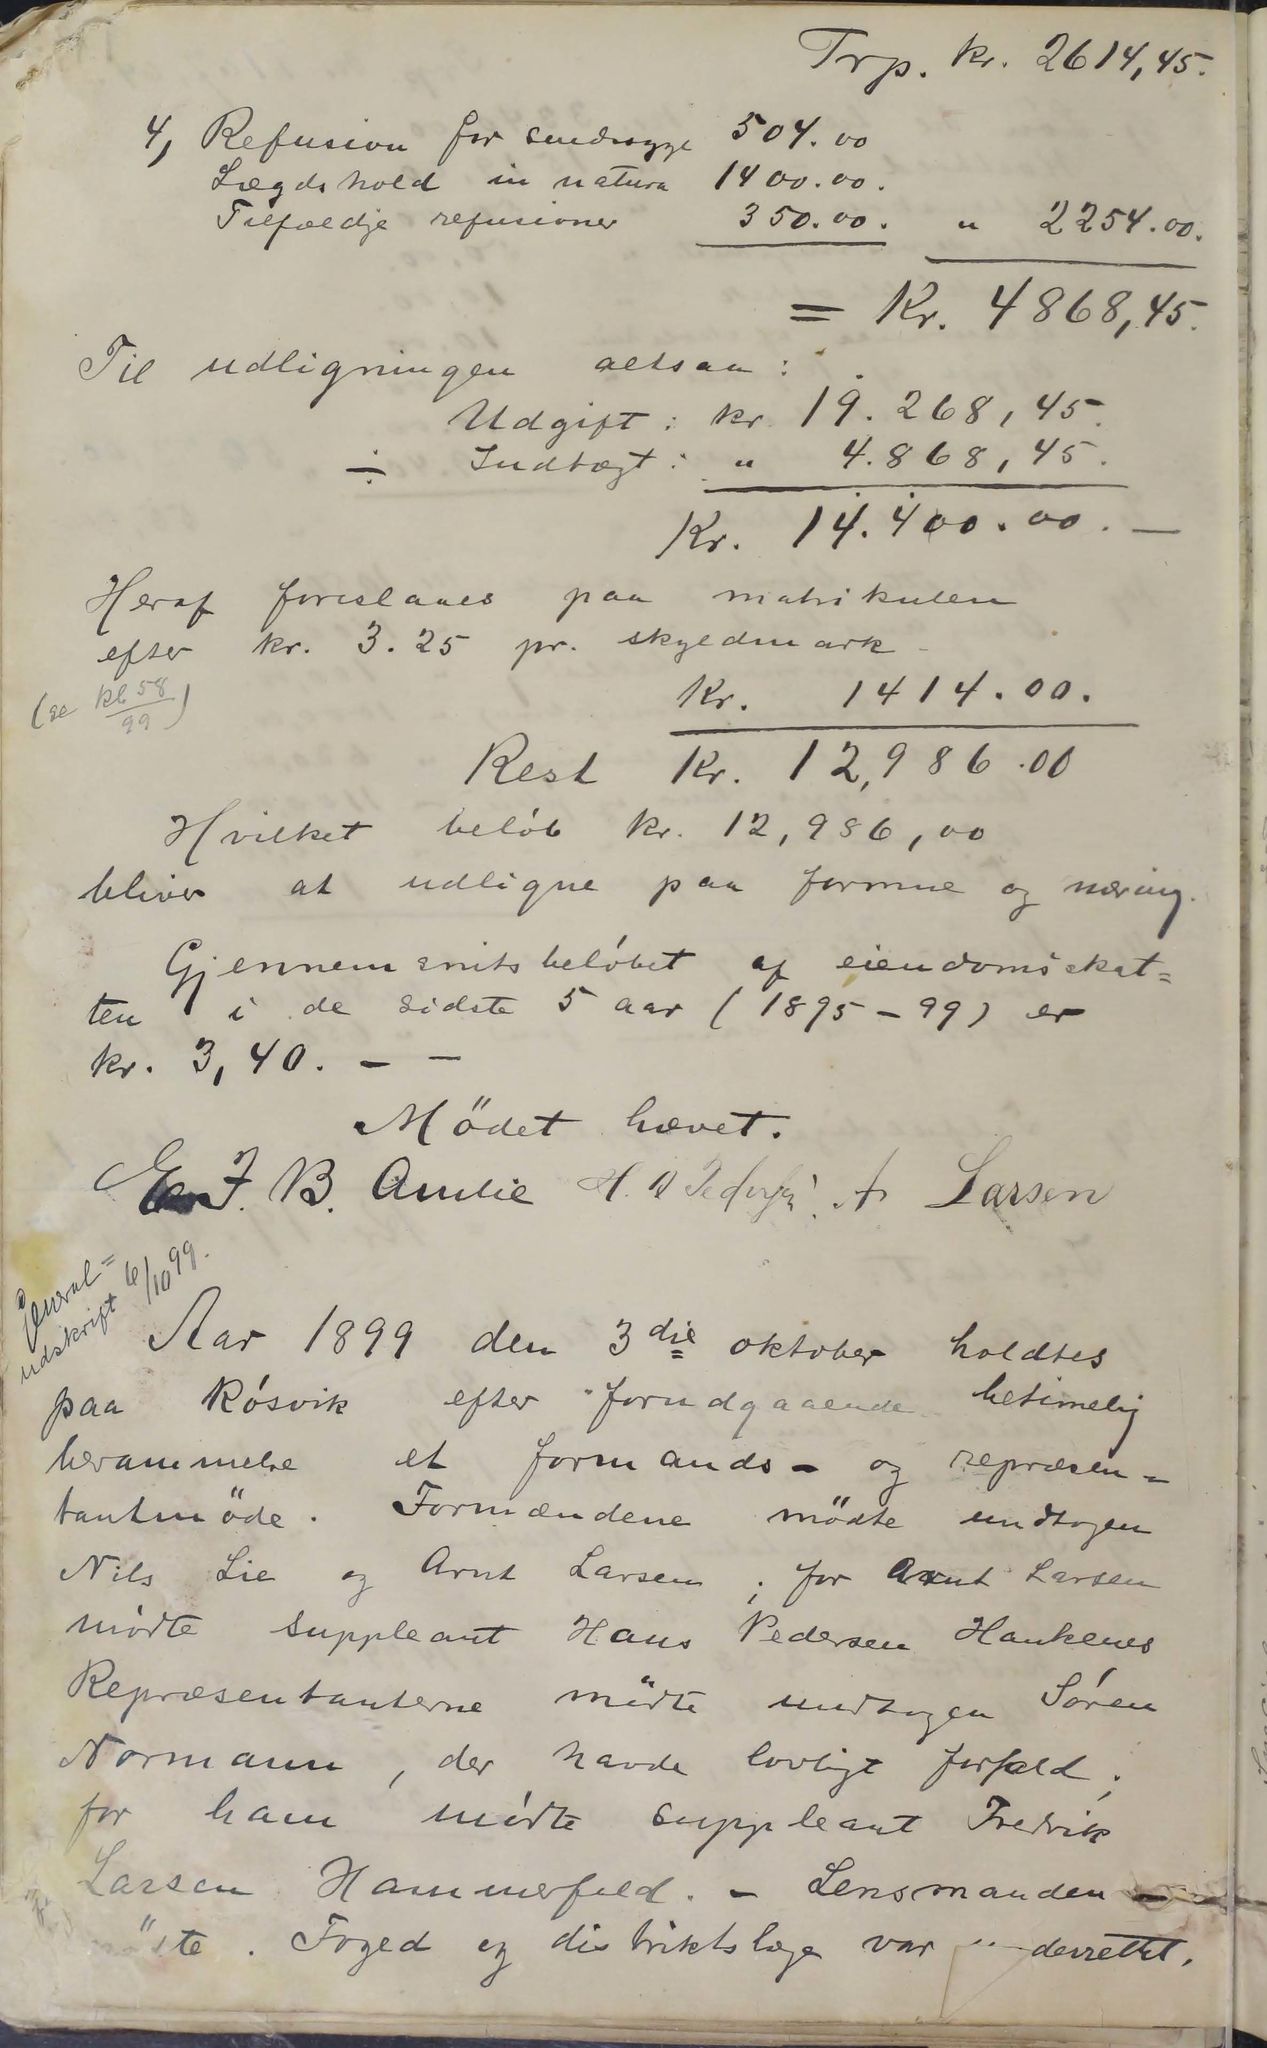 Trp. kr. 2614,45.
4, Refusion for sindssyge 504.00
Lægdshold in natura 1400.00.
Tilfældige refusioner 350.00. " 2254.00.
= Kr. 4868,45.
Til udligningen altsaa:
Udgift: kr. 19.268,45.
÷ Indtægt: " 4.868,45.
Kr. 14.400.00. —
Heraf foreslaaes paa matrikulen
efter kr. 3.25 pr. skyldmark -
(se kl 58/99)
Kr. 1414.00.
Rest Kr. 12,986.00
Hvilket beløb kr. 12,986,00
bliver at udligne paa formue og næring.
Gjennemsnitsbeløbet af eiendomsskat=
ten i de sidste 5 aar (1895-99) er
kr. 3,40. - —
Mödet hævet.
F. B. Amlie H. Larsen
General=
udskrift 6/10 99.
Aar 1899 den 3die oktober holdtes
paa Røsvik efter forudgaaende betimelig
berammelse et formands- og repræsen-
tantmöde. Formændene mödte undtagen
Nils Lie og Arnt Larsen; for Arnt Larsen
mødte suppleant Hans Pedersen Hankenes
Repræsentanterne mödte undtagen Søren
Normann, der havde lovligt forfald;
for ham mödte suppleant Fredrik
Larsen Hammerfald. - Lensmanden -
mödte. Foged og distriktslæge var underrettet.